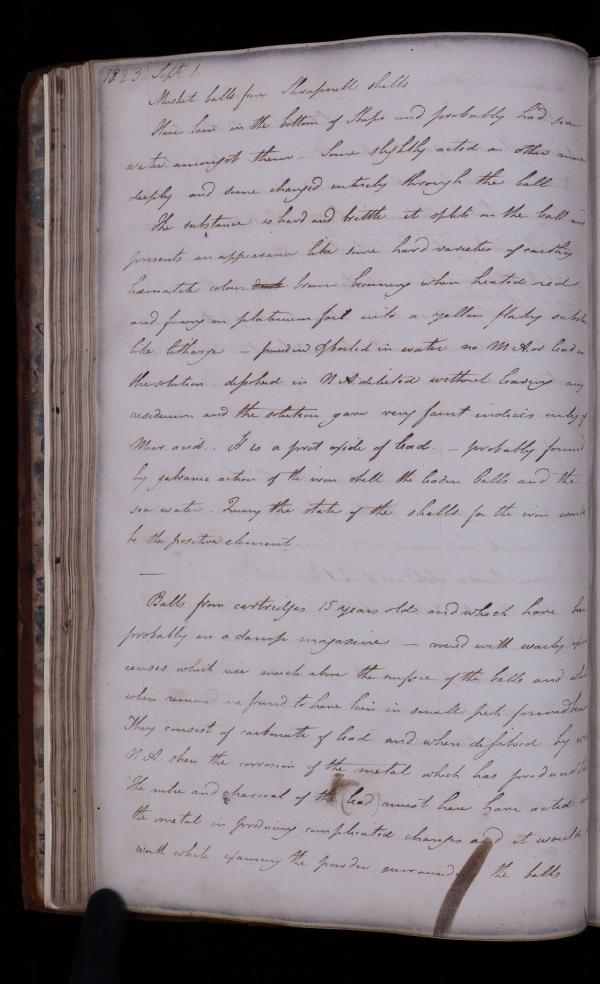 1823 Sept 1.
Musket balls from Shrapnell shells
Have lain in the bottom of Ships and probably had sea
water amongst them - Some slightly acted on other more
deeply and some changed entirely through the ball
The substance is hard and brittle it splits on the ball and
presents an appearance like some hard varieties of earthy
hæmatite colour dark brown becoming when heated red
and fusing on platinum foil into a yellow flaky substan
like litharge - powdered & boiled in water no M A or lead in
the solution. dissolved in N A diluted without leaving any
residuum and the solution gave very faint indicis only of
Mur. acid. It is a prot oxide of lead. - probably formed
by galvanic action of the iron shell the leaden balls and the
sea water. Query the state of the shells for the iron would
be the positive element.
—
Balls from cartridges 15 years old and which have been
probably in a damp magazine - covered with warty excres
censes which rise much above the surface of the balls and which
when removed are found to have lain in small pits formed
They consist of carbonate of lead and when dissolved by
N A. shew the corrosion of the metal which has produced
The nitre and charcoal of the (lead) must here have acted on
the metal in producing complicated changes and it would
worth while examing the powder surrounding the balls